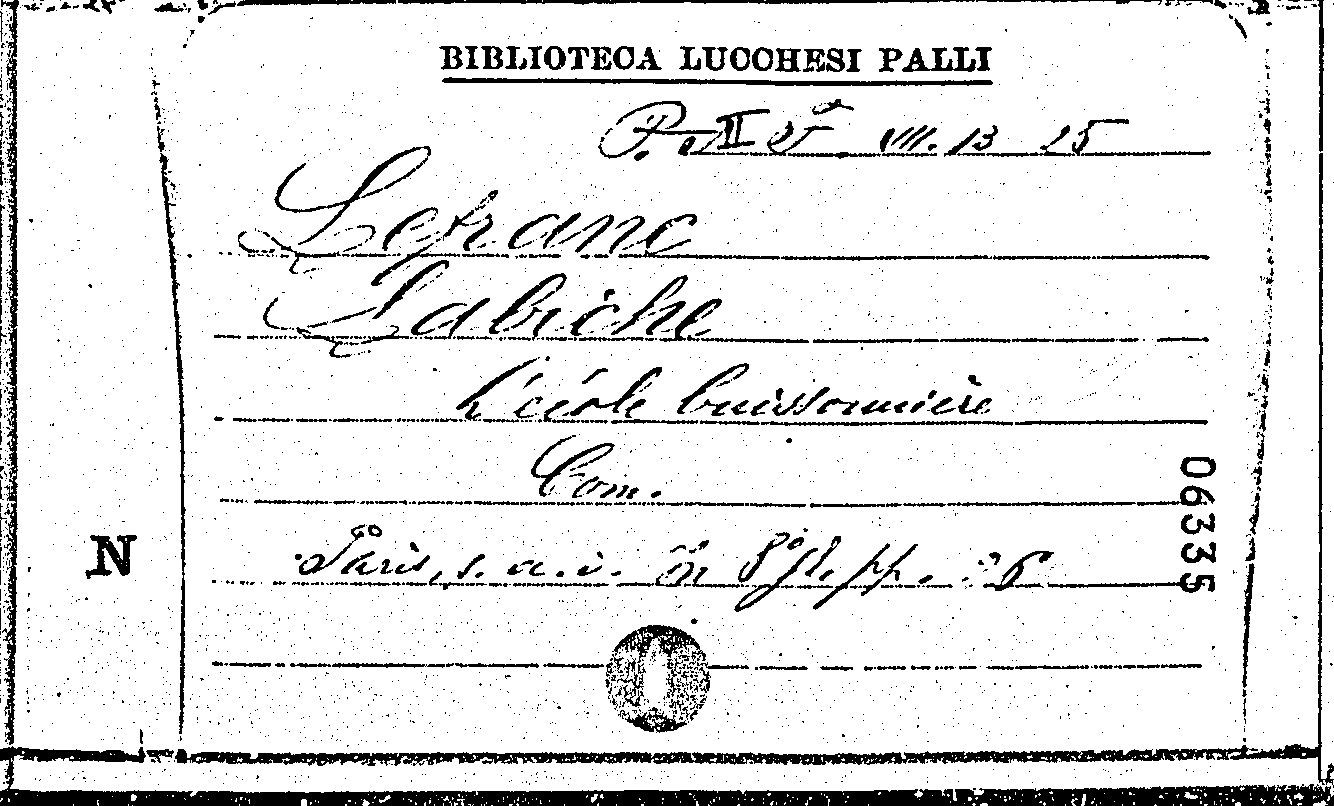 BIBLIOTECA LUCCHESI PALLI
VIII. 13 25
Lefranc
Labiche
L'école buissonnière
Com.
Paris, s. a. i. in 8° gr. pp. 26
06335
N